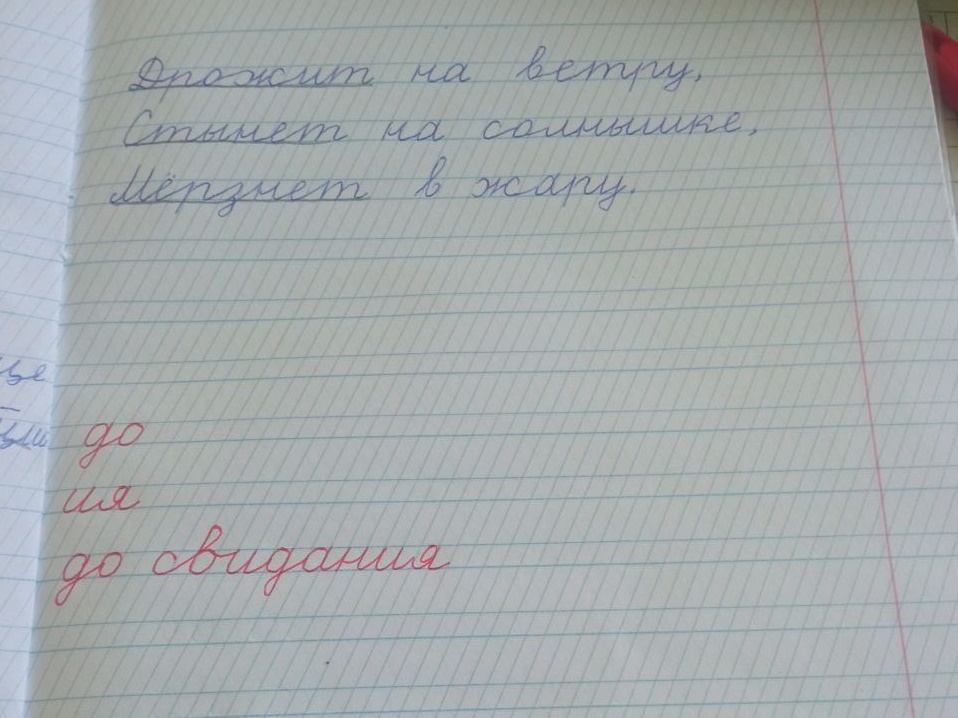 Дрожит на ветру,
Стынет на солнышке,
Мёрзнет в жару.
до
ия
до свидания